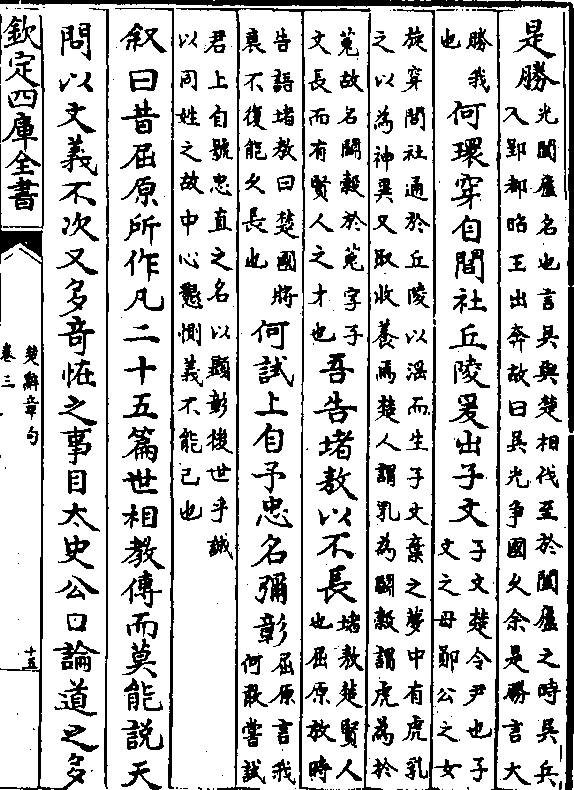 是勝
光闔廬名也言吳與楚相伐至於闔廬之時吳兵
入郢都昭王出奔故曰吳光爭國久余是勝言大
勝我
也
何環穿自閭社丘陵爰出子文
子文楚令尹也子
文之母鄖公之女
旋穿閭社通於丘陵以淫而生子文棄之夢中有虎乳
之以為神異又取收養焉楚人謂乳為鬭穀謂虎為於
菟故名鬭穀於菟字子
文長而有賢人之才也
吾告堵敖以不長
堵敖楚賢人
也屈原放時
告語堵敖曰楚國將
衰不復能久長也
何試上自予忠名彌彰
屈原言我
何敢嘗試
君上自號忠直之名以顯彰後世乎誠
以同姓之故中心懇惻義不能已也
叙曰昔屈原所作凡二十五篇世相教傳而莫能說天
問以文義不次又多奇恠之事自太史公口論道之多
欽定四庫全書
楚辭章句
卷三
十五